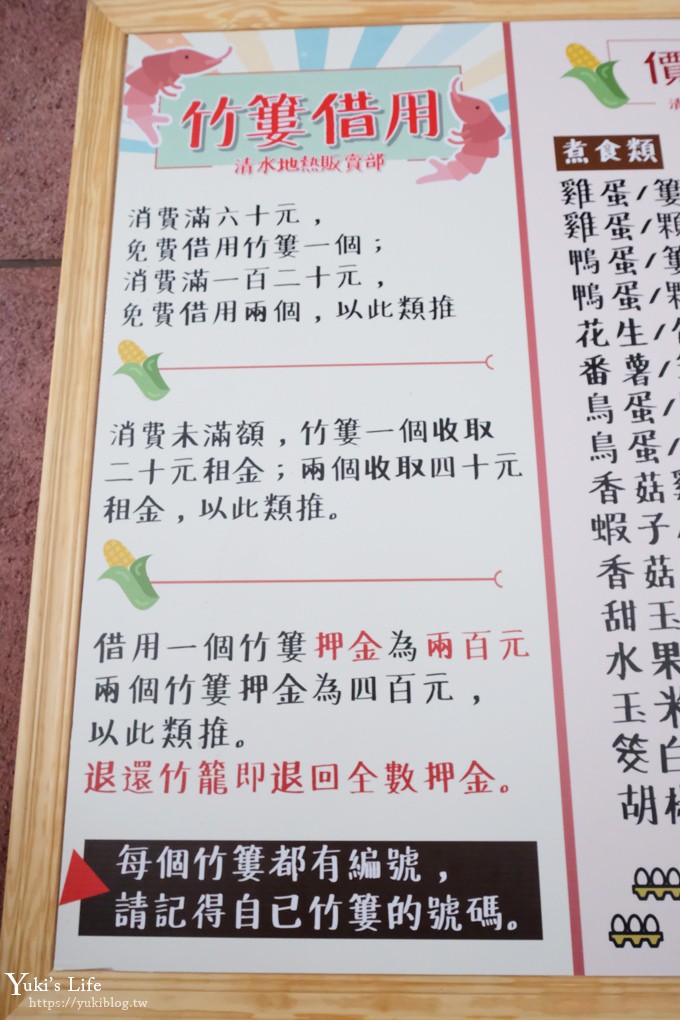 竹簍借用
清水地熱販賣部
消費滿六十元，
免費借用竹簍一個；
消費滿一百二十元，
免費借用兩個，以此類推
消費未滿額，竹簍一個收取
二十元租金；兩個收取四十元
租金，以此類推。
借用一個竹簍押金為兩百元
兩個竹簍押金為四百元，
以此類推。
退還竹籠即退回全數押金。
每個竹簍都有編號，
請記得自已竹簍的號碼。
價
清
煮食類
雞蛋/簍
雞蛋/顆
鴨蛋/簍
鴨蛋/顆
花生/
番薯/
鳥蛋/
鳥蛋/
香菇雞
蝦子/
香菇
甜玉
水果
玉米
筊白
胡椒
Yuki's Life
https://yukiblog.tw